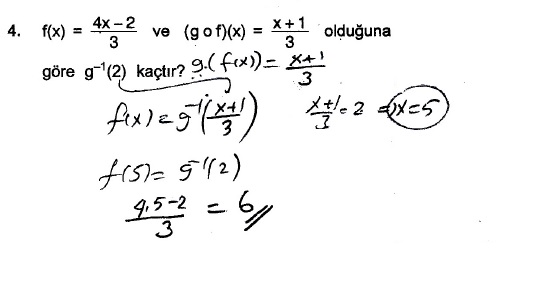 4. f(x) = (4x – 2)/3 ve (g o f)(x) = (x + 1)/3 olduğuna
göre g⁻¹(2) kaçtır? g.(f(x)) = (x+1)/3
f(x) = g⁻¹((x+1)/3) (x+1)/3 = 2 ⇒ x = 5
f(5) = g⁻¹(2)
(4.5-2)/3 = 6//